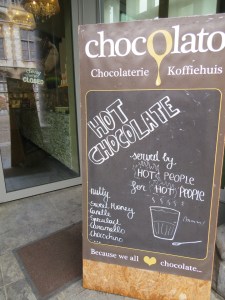 chocolato
Chocolaterie Koffiehuis
HOT
CHOCOLATE
served by
HOT PEOPLE
for HOT PEOPLE
nutty
Sweet Honey
Vanille
Speculoos
Caramello
Chocochino
Because we all chocolate...
CLOSED